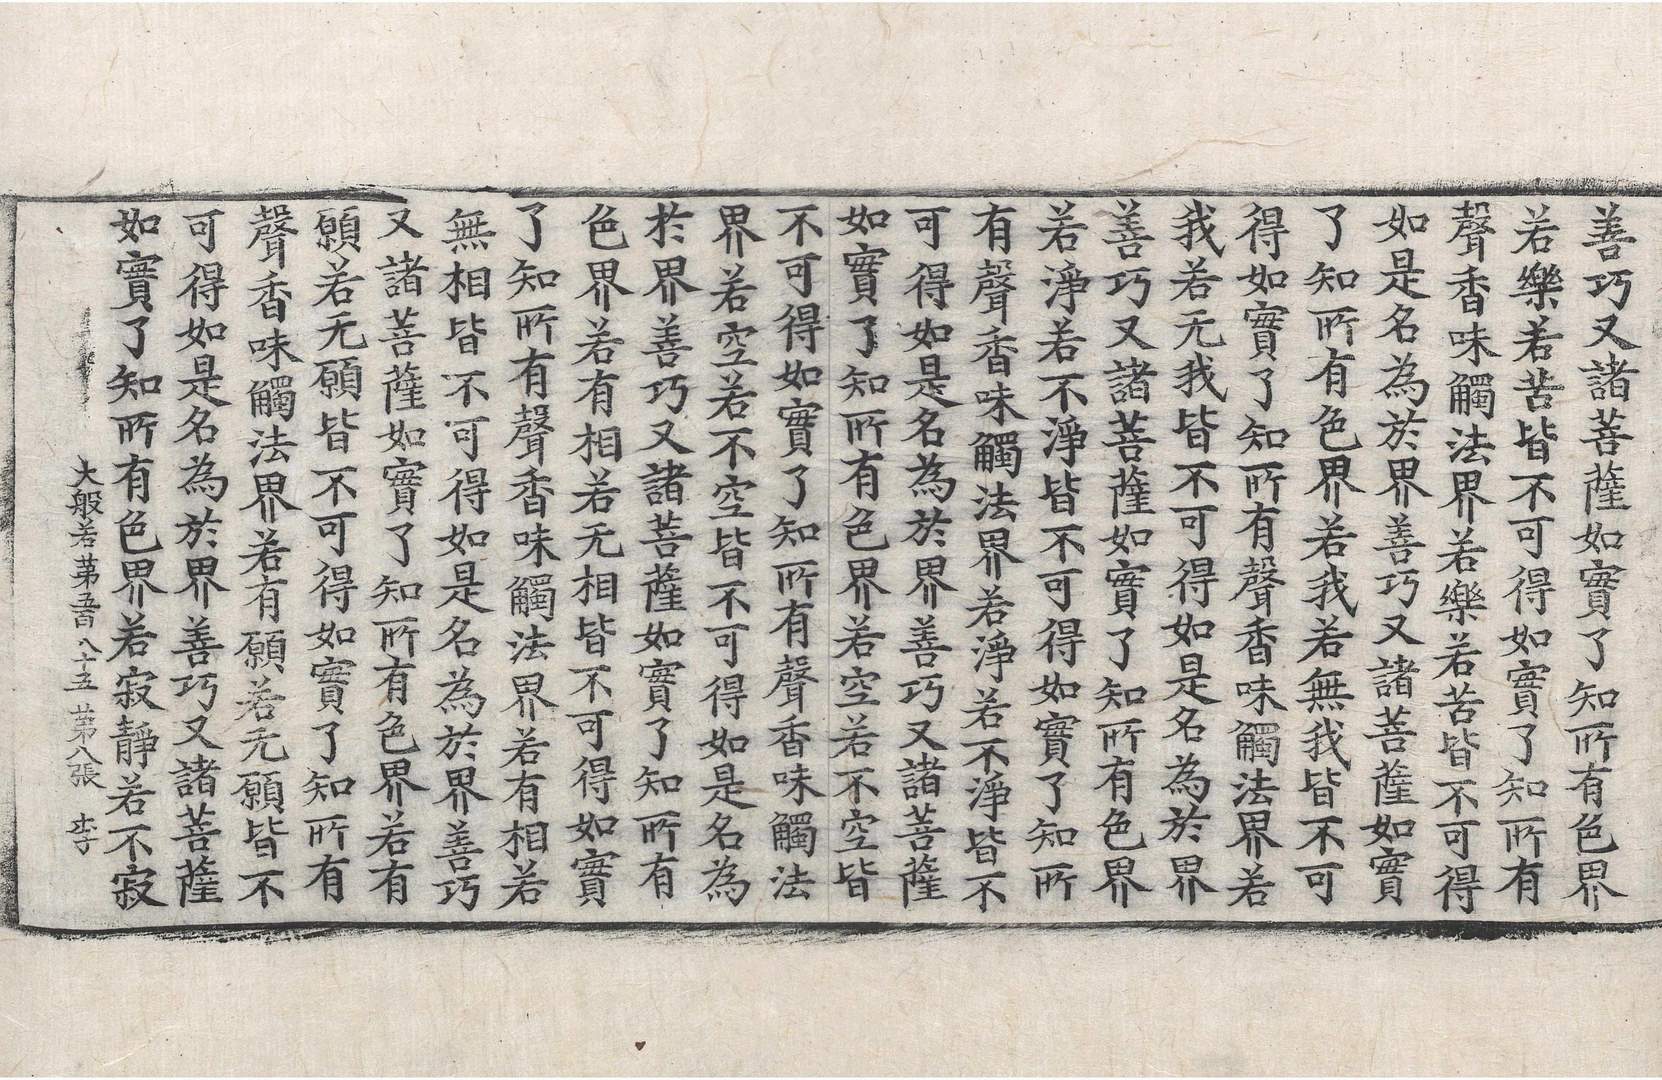 善巧又諸菩薩如實了知所有色界
若樂若苦皆不可得如實了知所有
聲香味觸法界若樂若苦皆不可得
如是名為於界善巧又諸菩薩如實
了知所有色界若我若無我皆不可
得如實了知所有聲香味觸法界若
我若无我皆不可得如是名為於界
善巧又諸菩薩如實了知所有色界
若淨若不淨皆不可得如實了知所
有聲香味觸法界若淨若不淨皆不
可得如是名為於界善巧又諸菩薩
如實了知所有色界若空若不空皆
不可得如實了知所有聲香味觸法
界若空若不空皆不可得如是名為
於界善巧又諸菩薩如實了知所有
色界若有相若无相皆不可得如實
了知所有聲香味觸法界若有相若
無相皆不可得如是名為於界善巧
又諸菩薩如實了知所有色界若有
願若无願皆不可得如實了知所有
聲香味觸法界若有願若无願皆不
可得如是名為於界善巧又諸菩薩
如實了知所有色界若寂靜若不寂
大般若第五百八十五 第八張 李